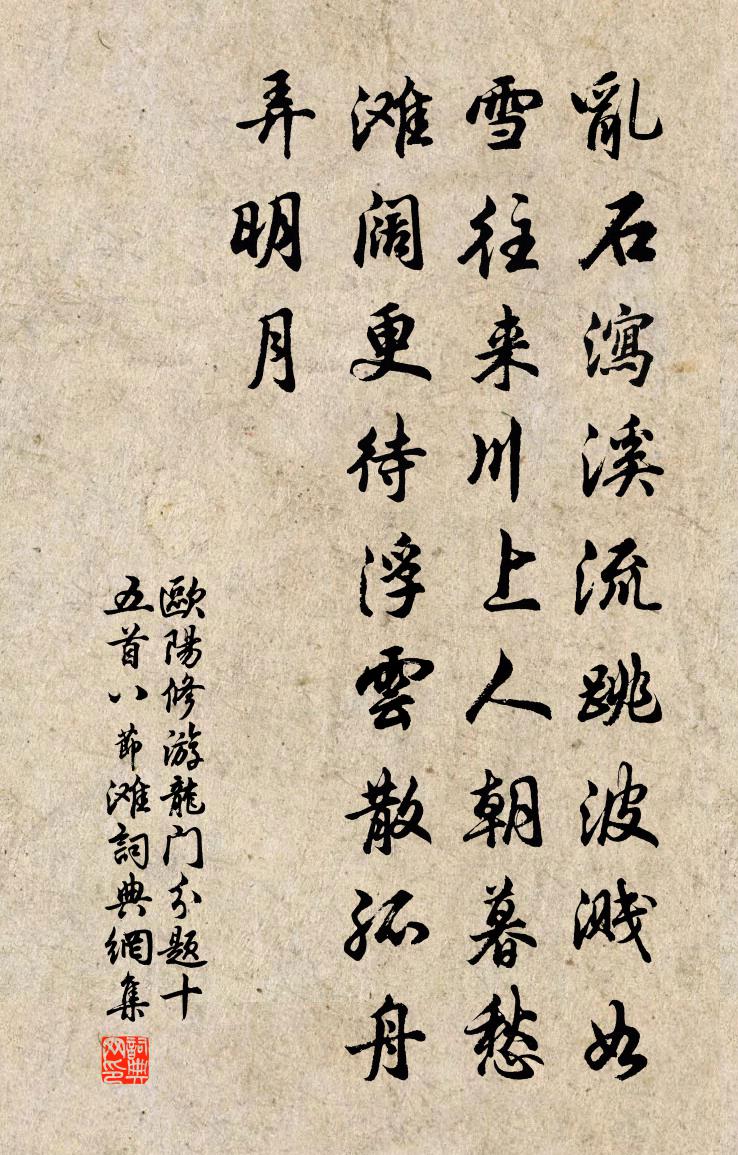 亂石瀉溪流跳波濺如
雪往来川上人朝暮愁
滩阔更待浮雲散孤舟
弄明月
歐陽修游龍门分题十
五首八節滩詞典網集
詞典网印